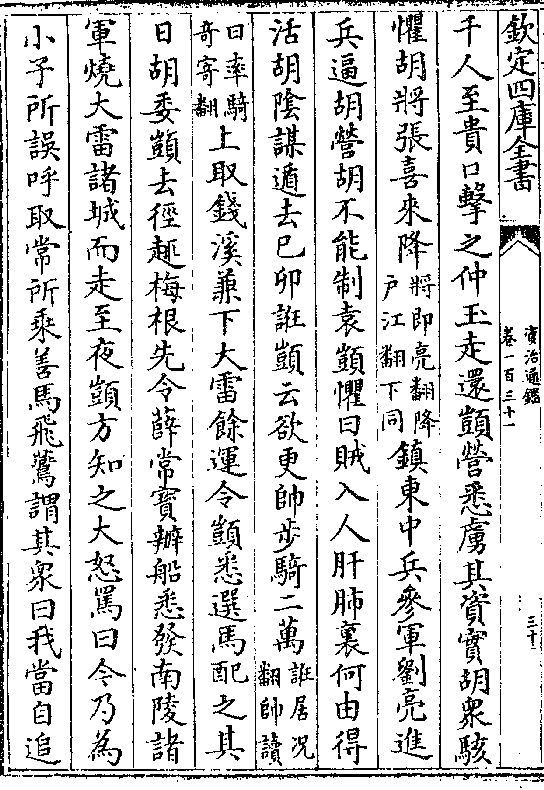 欽定四庫全書
資治通鑑
卷一百三十一
三十
千人至貴口擊之仲玉走還顗營悉虜其資實胡衆駭
懼胡將張喜來降將即亮翻降户江翻下同鎮東中兵參軍劉亮進
兵逼胡營胡不能制袁顗懼曰賊入人肝肺裏何由得
活胡陰謀遁去己卯誑顗云欲更帥步騎二萬誑居况翻帥讀
曰率騎奇寄翻上取錢溪兼下大雷餘運令顗悉選馬配之其
日胡委顗去徑趣梅根先令薛常寶辦船悉發南陵諸
軍燒大雷諸城而走至夜顗方知之大怒罵曰今乃為
小子所誤呼取常所乘善馬飛鷰謂其衆曰我當自追